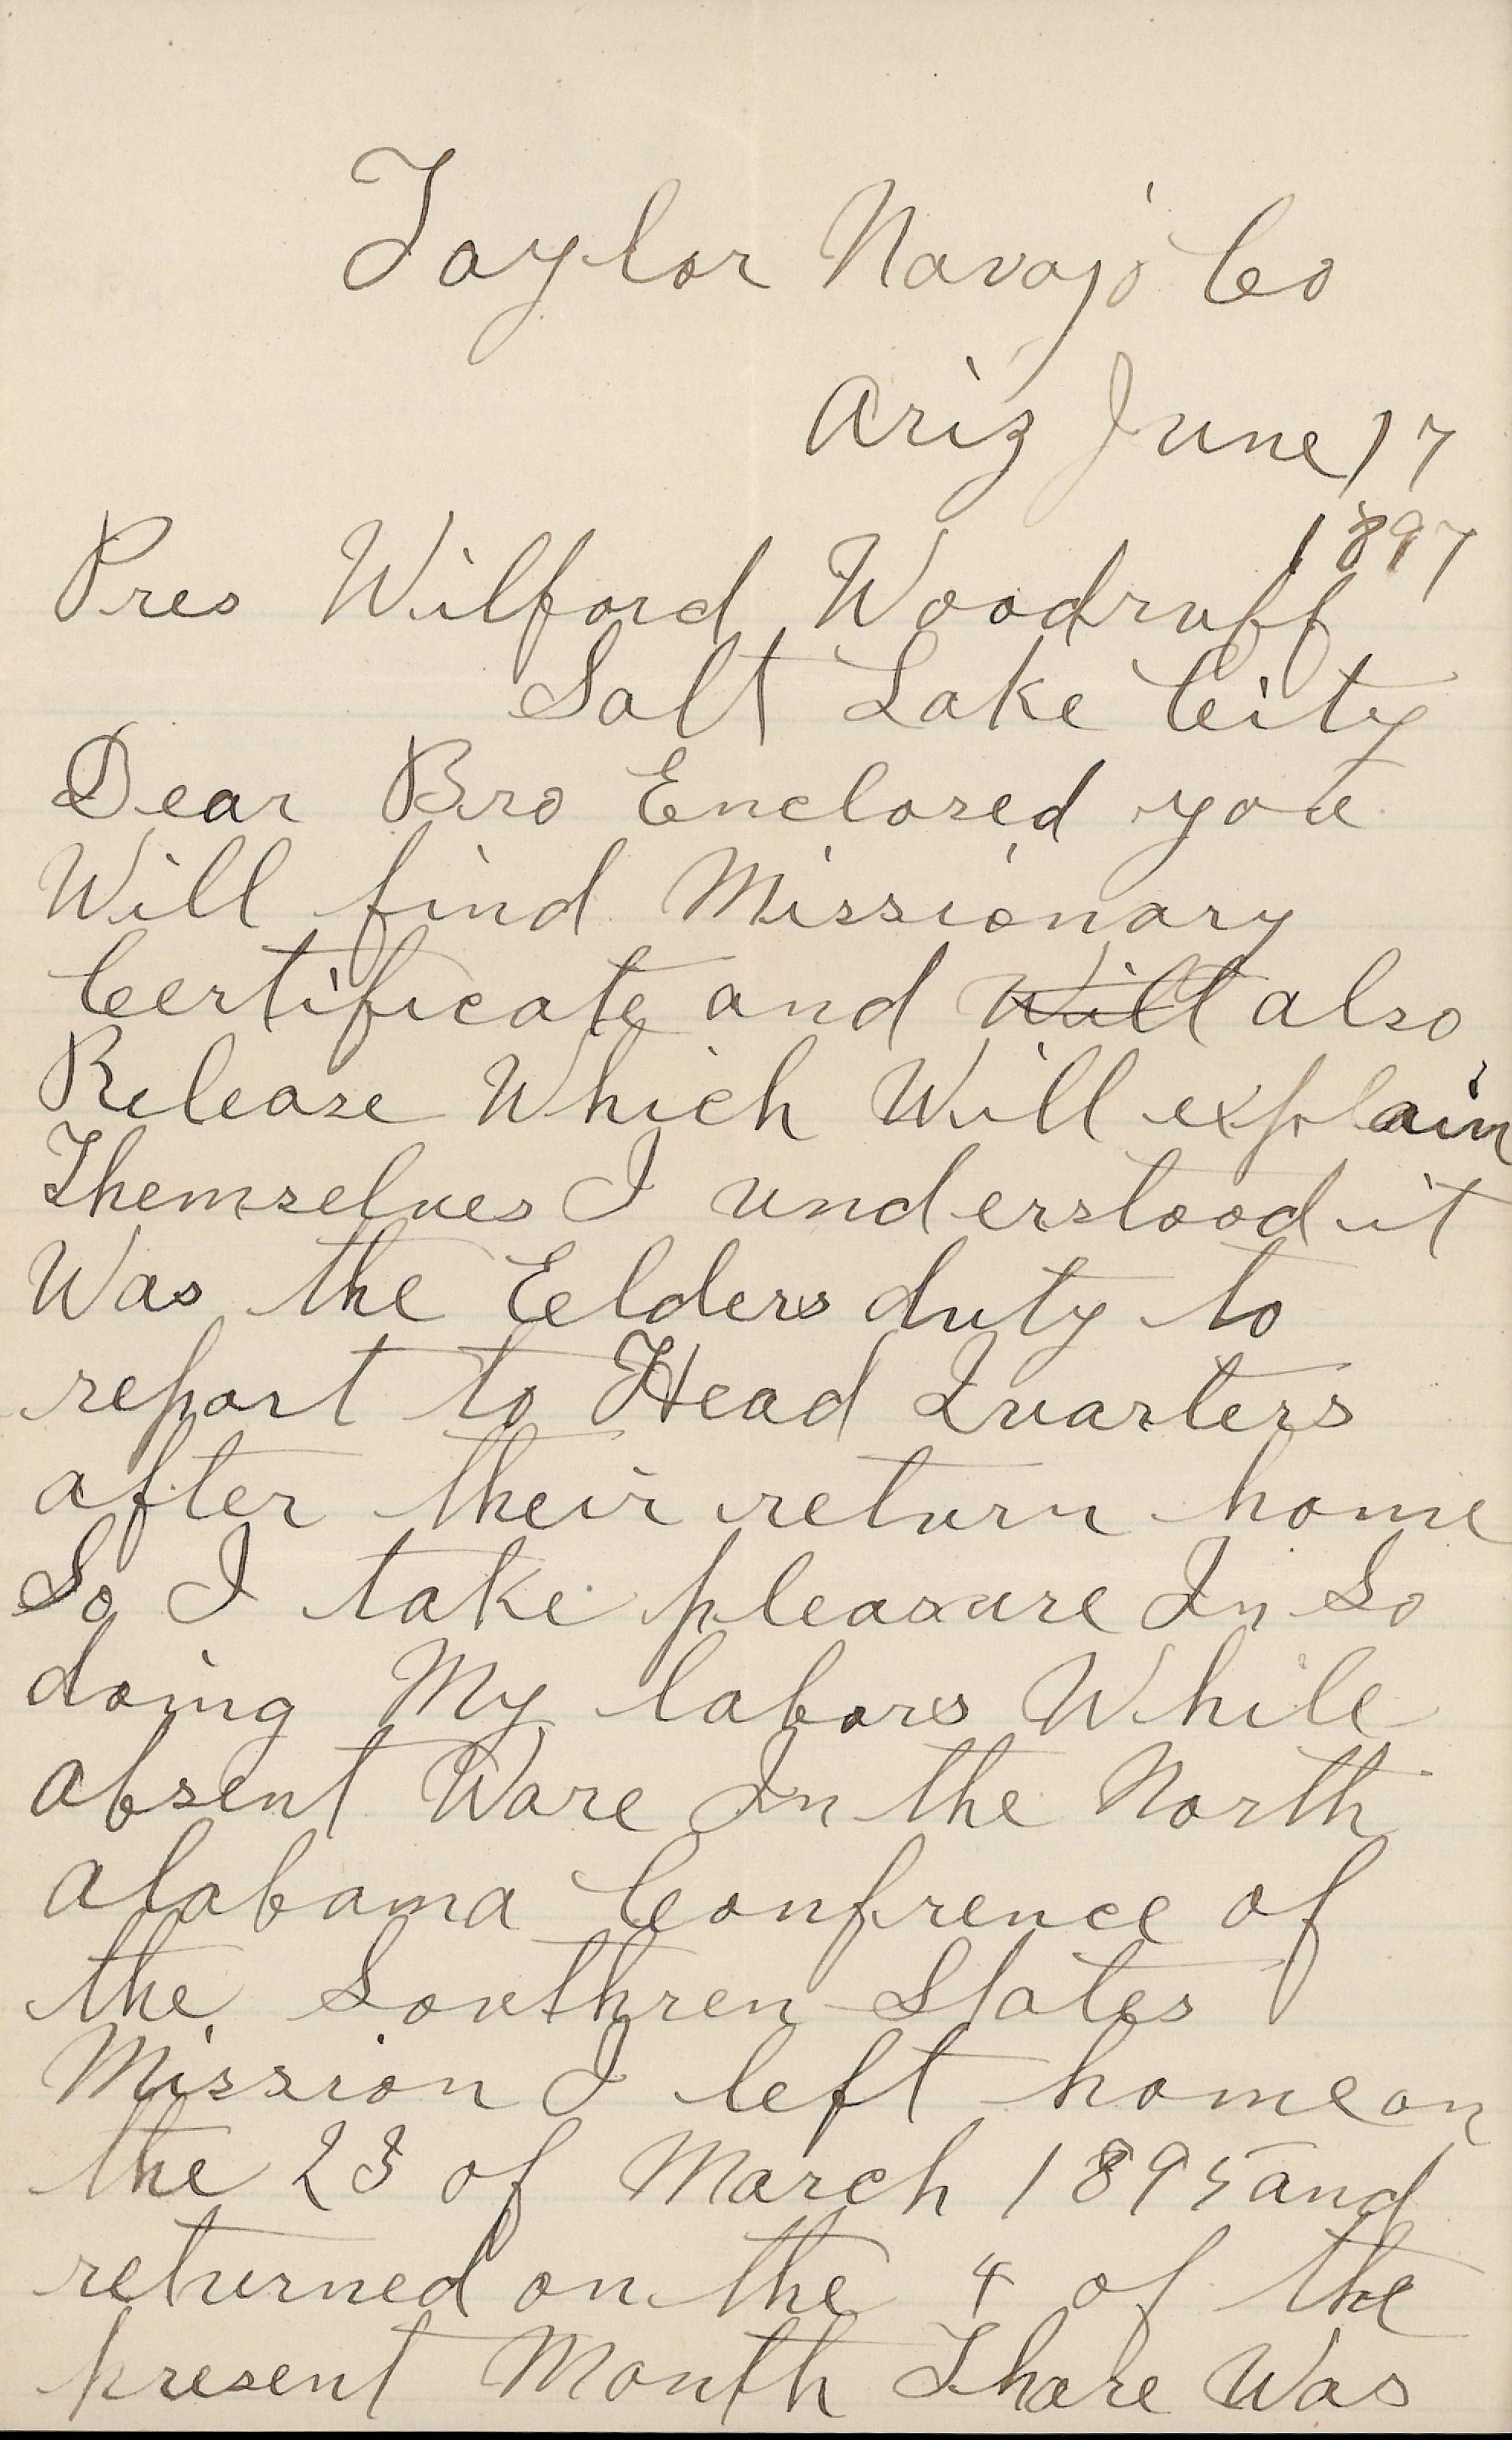 Taylor Navajo Co
Ariz June 17
1897
Pres Wilford Woodruff
Salt Lake City
Dear Bro Enclosed you
Will find Missionary
Certificate and Will also
Release Which Will explain
Themselves I understood it
Was the Eelders duty to
report to Head Quarters
after their return home
So I take pleasure In So
doing My labors While
absent Ware In the North
Alabama Confrence of
the Southren States
Mission I left home on
the 23 of March 1895 and
returned on the 4 of the
present Month Thare Was